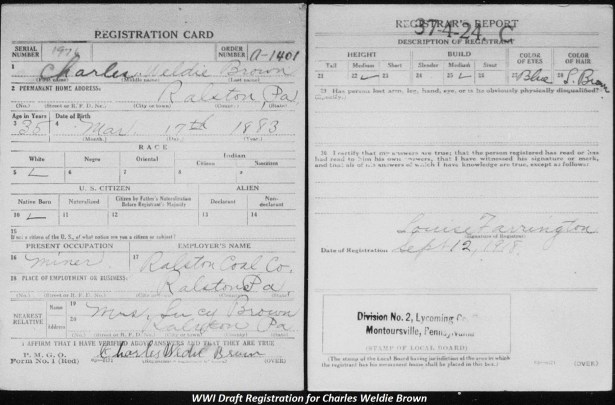 REGISTRATION CARD
SERIAL NUMBER 1976 ORDER NUMBER A-1401
1 Charles Weldie Brown
2 PERMANENT HOME ADDRESS:
Ralston, Pa
(No.) (Street or R. F. D. No.) (City or town) (County) (State)
Age in Years Date of Birth
3 35 4 Mar. 17th 1883
(Month.) (Day.) (Year.)
RACE
White Negro Oriental Indian
Citizen Noncitizen
5 6 7 8 9
U. S. CITIZEN ALIEN
Native Born Naturalized Citizen by Father's Naturalization Before Registrant's Majority Declarant Non-declarant
10 11 12 13 14
15
If not a citizen of the U. S., of what nation are you a citizen or subject?
PRESENT OCCUPATION EMPLOYER'S NAME
16 Miner 17 Ralston Coal Co.
18 PLACE OF EMPLOYMENT OR BUSINESS:
Ralston Pa,
(No.) (Street or R. F. D. No.) (City or town) (County) (State)
NEAREST RELATIVE Name 19 Mrs. Lucy Brown
Address 20 Ralston Pa
(No.) (Street or R. F. D. No.) (City or town) (County) (State)
I AFFIRM THAT I HAVE VERIFIED ABOVE ANSWERS AND THAT THEY ARE TRUE
P. M. G. O.
Form No. 1 (Red) Charles Weldie Brown (OVER)
REGISTRAR'S REPORT
37-4-24. C
DESCRIPTION OF REGISTRANT
HEIGHT BUILD COLOR OF EYES COLOR OF HAIR
Tall Medium Short Slender Medium Stout
21 22 23 24 25 26 27 Blue 28
29 Has person lost arm, leg, hand, eye, or is he obviously physically disqualified?
(Specify.)
30 I certify that my answers are true; that the person registered has read or has had read to him his own answers; that I have witnessed his signature or mark, and that all of his answers of which I have knowledge are true, except as follows:
Louise Farrington
(Signature of Registrar)
Date of Registration Sept 12, 1918.
Division No. 2, Lycoming
Montoursville, Pennsylvania
(STAMP OF LOCAL BOARD)
(The stamp of the Local Board having jurisdiction of the area in which the registrant has his permanent home shall be placed in this box.)
(OVER)
WWI Draft Registration for Charles Weldie Brown